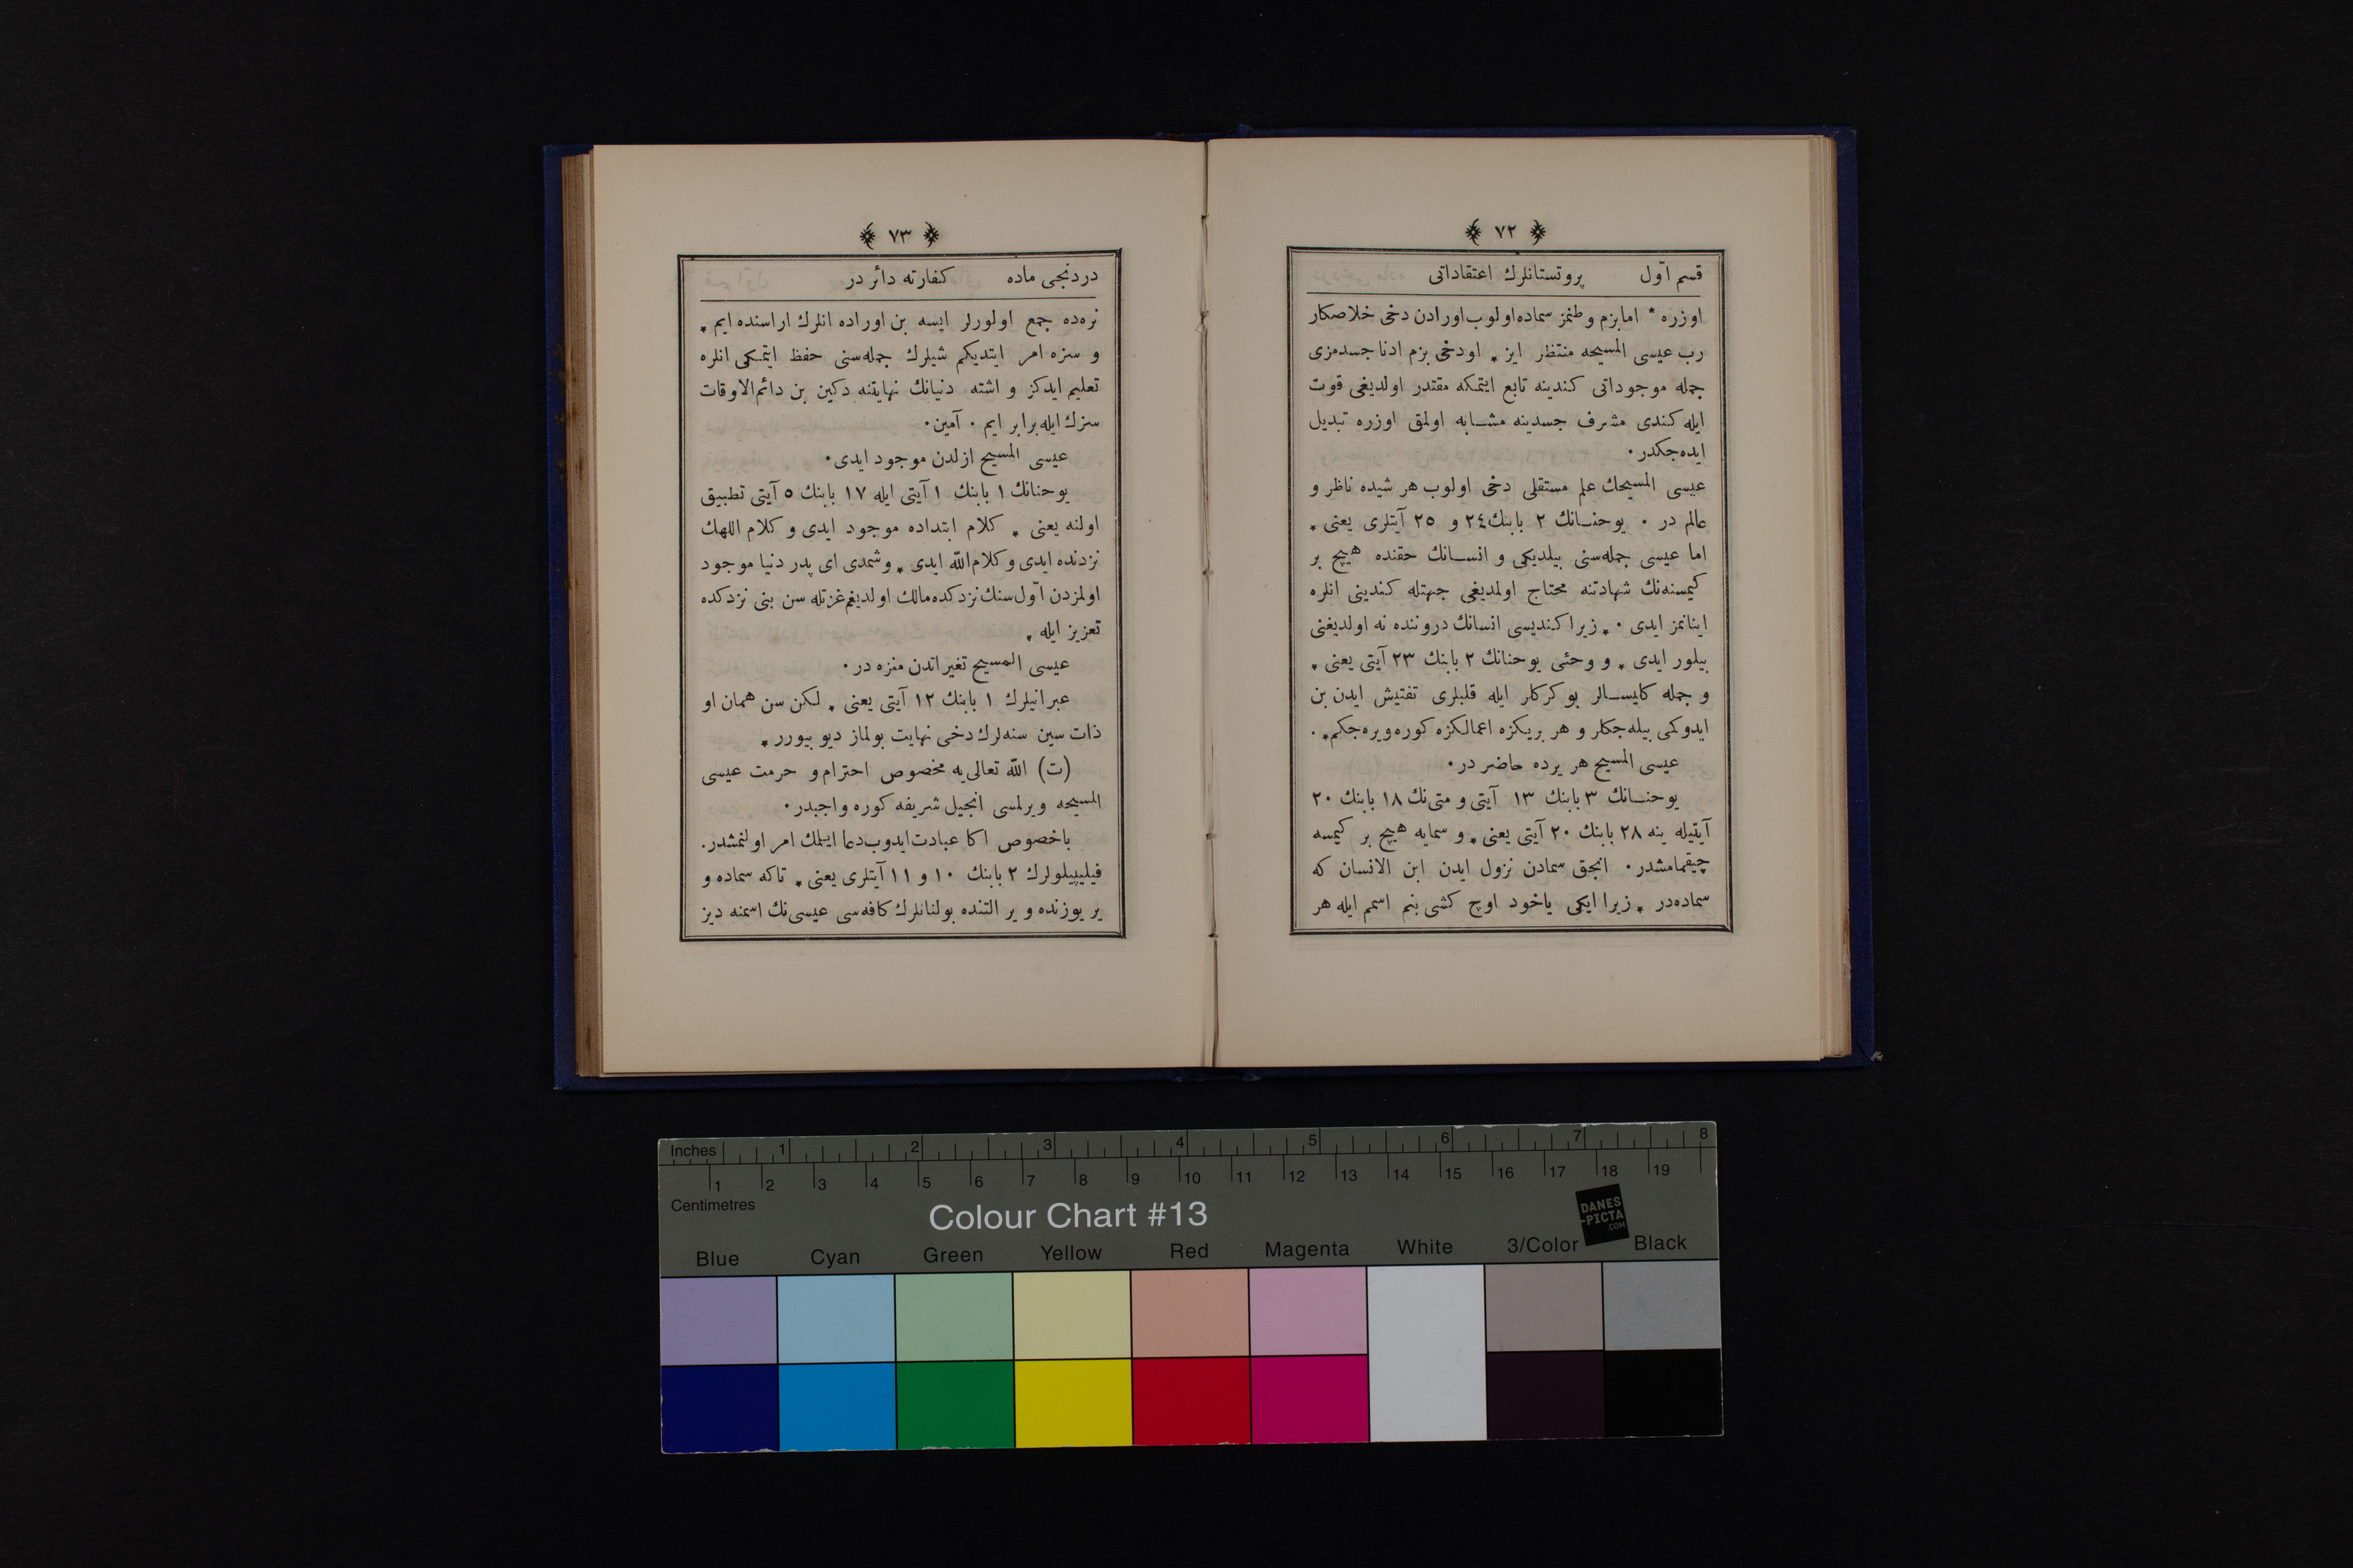 ﴿ ٧٢ ﴾
قسم اوّل پروتستانلرك اعتقاداتی
اوزره * اما بزم وطنمز سماده اولوب اورادن دخی خلاصكار
رب عیسی المسیحه منتظر ایز * اودخی بزم ادنا جسدمزی
جمله موجوداتی كندینه تابع ایتمكه مقتدر اولدیغی قوت
ایله كندی مشرف جسدینه مشابه اولمق اوزره تبدیل
ایده‌جكدر ·
عیسی المسیحك علم مستقلی دخی اولوب هر شیده ناظر و
عالم در · یوحنانك ٢ بابنك ٢٤ و ٢٥ آیتلری یعنی *
اما عیسی جمله‌سنی بیلدیكی و انسانك حقنده هیچ بر
كیمسنه‌نك شهادتنه محتاج اولمدیغی جهتله كندینی انلره
اینانمز ایدی · * زیرا كندیسی انسانك دروننده نه اولدیغنی
بیلور ایدی * و وحئی یوحنانك ٢ بابنك ٢٣ آیتی یعنی *
و جمله كلیسالر بوكركلر ایله قلبلری تفتیش ایدن بن
ایدوكمی بیله‌جكلر و هر بریكزه اعمالكزه كوره ویره‌جكم * ·
عیسی المسیح هر یرده حاضر در ·
یوحنانك ٣ بابنك ١٣ آیتی و متی‌نك ١٨ بابنك ٢٠
آیتیله ینه ٢٨ بابنك ٢٠ آیتی یعنی * و سمایه هیچ بر كیمسه
چیقمامشدر · انجق سمادن نزول ایدن ابن الانسان كه
سماده‌در * زیرا ایكی یاخود اوچ كشی بنم اسمم ایله هر
﴿ ٧٣ ﴾
دردنجی ماده كفارته دائر در
نره‌ده جمع اولورلر ایسه بن اوراده انلرك اراسنده ایم *
و سزه امر ایتدیكم شیلرك جمله‌سنی حفظ ایتمكی انلره
تعلیم ایدكز و اشته دنیانك نهایتنه دكین بن دائم الاوقات
سزك ایله برابر ایم · آمین ·
عیسی المسیح ازلدن موجود ایدی ·
یوحنانك ١ بابنك ١ آیتی ایله ١٧ بابنك ٥ آیتی تطبیق
اولنه یعنی * كلام ابتداده موجود ایدی و كلام اللهك
نزدنده ایدی و كلام الله ایدی * و شمدی ای پدر دنیا موجود
اولمزدن اوّل سنك نزدكده مالك اولدیغم عزتله سن بنی نزدكده
تعزیز ایله *
عیسی المسیح تغیراتدن منزه در ·
عبرانیلرك ١ بابنك ١٢ آیتی یعنی * لكن سن همان او
ذات سین سنه‌لرك دخی نهایت بولماز دیو بیورر *
(ت) الله تعالی‌یه مخصوص احترام و حرمت عیسی
المسیحه ویرلمسی انجیل شریفه كوره واجبدر ·
باخصوص اكا عبادت ایدوب دعا ایلمك امر اولنمشدر ·
فیلیپیلولرك ٢ بابنك ١٠ و ١١ آیتلری یعنی * تاكه سماده و
یر یوزنده و یر التنده بولنانلرك كافه‌سی عیسی‌نك اسمنه دیز
Inches 1 2 3 4 5 6 7 8
1 2 3 4 5 6 7 8 9 10 11 12 13 14 15 16 17 18 19
Centimetres
Colour Chart #13
DANES
-PICTA
.COM
Blue Cyan Green Yellow Red Magenta White 3/Color Black